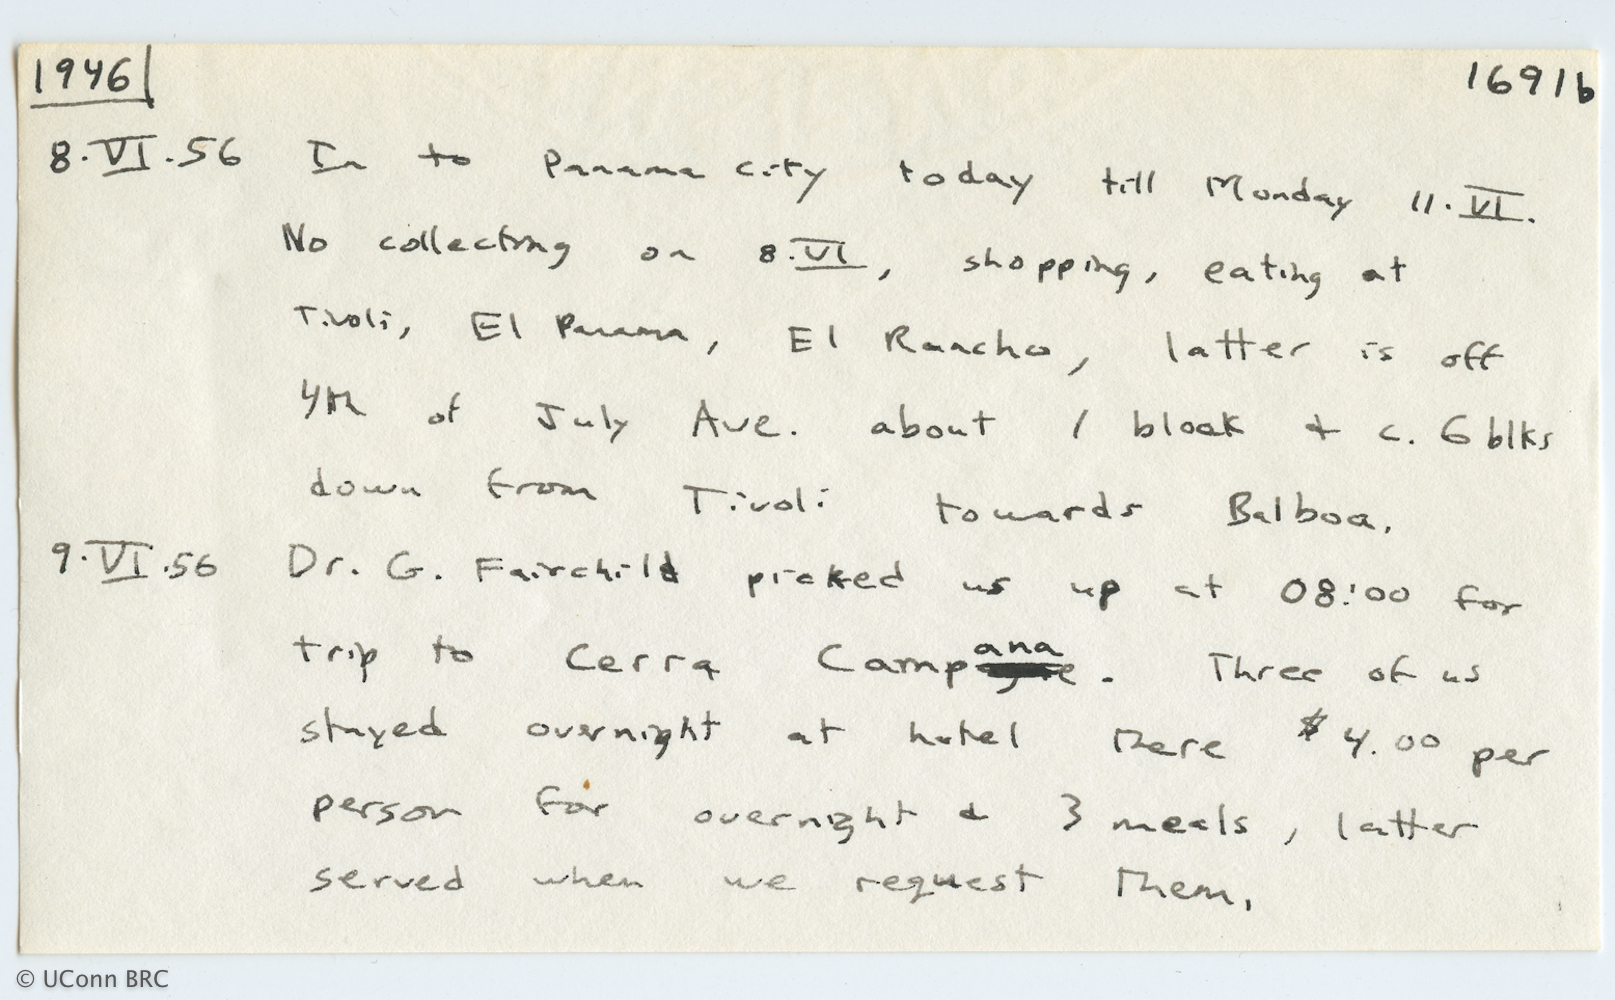 1946 1691b
8.VI.56 In to Panama city today till Monday 11.VI.
No collecting on 8.VI, shopping, eating at
Tivoli, El Panama, El Rancho, latter is off
4th of July Ave. about 1 block & c. 6 blks
down from Tivoli towards Balboa.
9.VI.56 Dr. G. Fairchild picked us up at 08:00 for
trip to Cerra Campana. Three of us
stayed overnight at hotel there $4.00 per
person for overnight & 3 meals, latter
served when we request them.
© UConn BRC